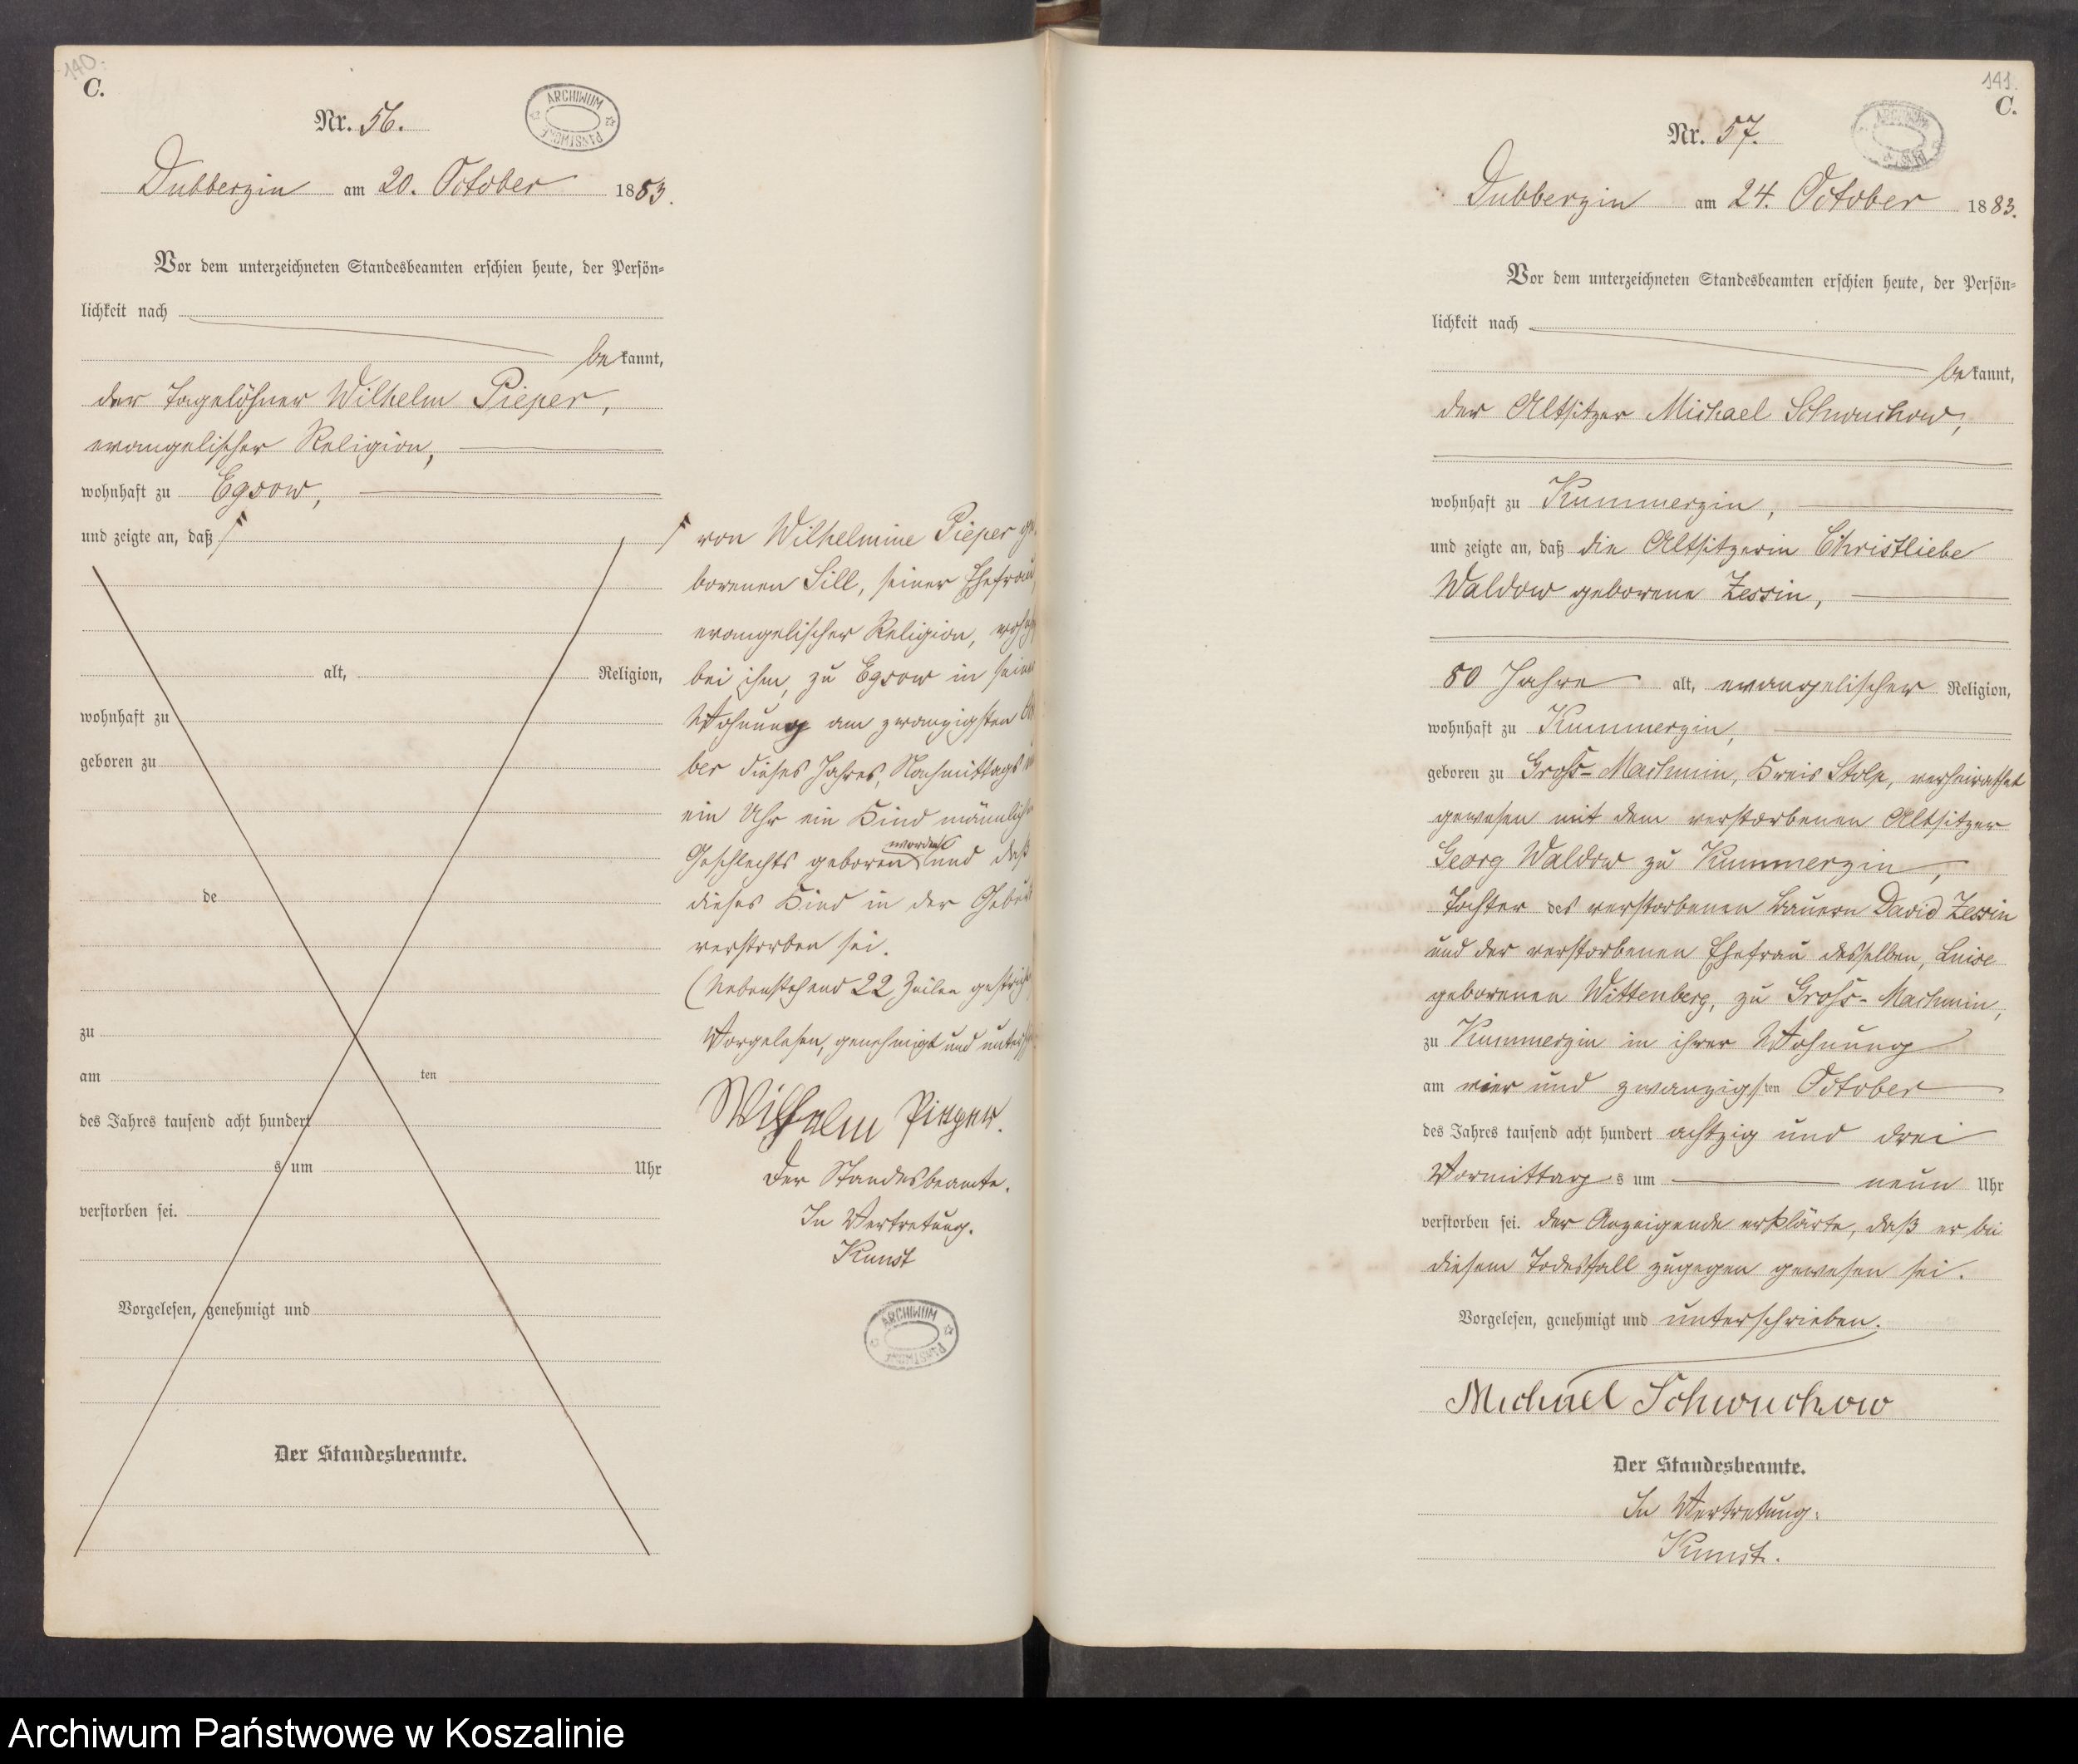 140.
C.
ARCHIWUM PAŃSTWOWE
Nr. 56.
Dubberzin am 20. October 1883.
Vor dem unterzeichneten Standesbeamten erschien heute, der Persön-
lichkeit nach
bekannt,
der Tagelöhner Wilhelm Pieper,
evangelischer Religion,
wohnhaft zu Egsow,
und zeigte an, daß
alt, Religion,
wohnhaft zu
geboren zu
de
zu
am ten
des Jahres tausend acht hundert
s um Uhr
verstorben sei.
Vorgelesen, genehmigt und
Der Standesbeamte.
von Wilhelmine Pieper ge-
borenen Sill, seiner Ehefrau,
evangelischer Religion,
bei ihm, zu Egsow in seiner
Wohnung am zwanzigsten
ber dieses Jahres, Nachmittags
ein Uhr ein Kind männlichen
worden
Geschlechts geboren und daß
dieses Kind in der Geburt
verstorben sei.
(Nebenstehend 22 Zeilen
Vorgelesen, genehmigt und
Wilhelm Pieper.
Der Standesbeamte.
In Vertretung.
Kunst
ARCHIWUM PAŃSTWOWE
141.
C.
ARCHIWUM PAŃSTWOWE
Nr. 57.
Dubberzin am 24. October 1883.
Vor dem unterzeichneten Standesbeamten erschien heute, der Persön-
lichkeit nach
bekannt,
der Altsitzer Michael Schwuchow,
wohnhaft zu Kummerzin,
und zeigte an, daß die Altsitzerin Christliebe
Waldow geborene Zessin,
80 Jahre alt, evangelischer Religion,
wohnhaft zu Kummerzin,
geboren zu Groß-Machmin, Kreis Stolp, verheirathet
gewesen mit dem verstorbenen Altsitzer
Georg Waldow zu Kummerzin,
Tochter des verstorbenen Bauern David Zessin
und der verstorbenen Ehefrau desselben, Luise
geborenen Wittenberg, zu Groß-Machmin,
zu Kummerzin in ihrer Wohnung
am vier und zwanzigsten October
des Jahres tausend acht hundert achtzig und drei
Vormittags um neun Uhr
verstorben sei. Der Anzeigende erklärte, daß er bei
diesem Todesfall zugegen gewesen sei.
Vorgelesen, genehmigt und unterschrieben.
Michael Schwuchow
Der Standesbeamte.
In Vertretung:
Kunst.
Archiwum Państwowe w Koszalinie